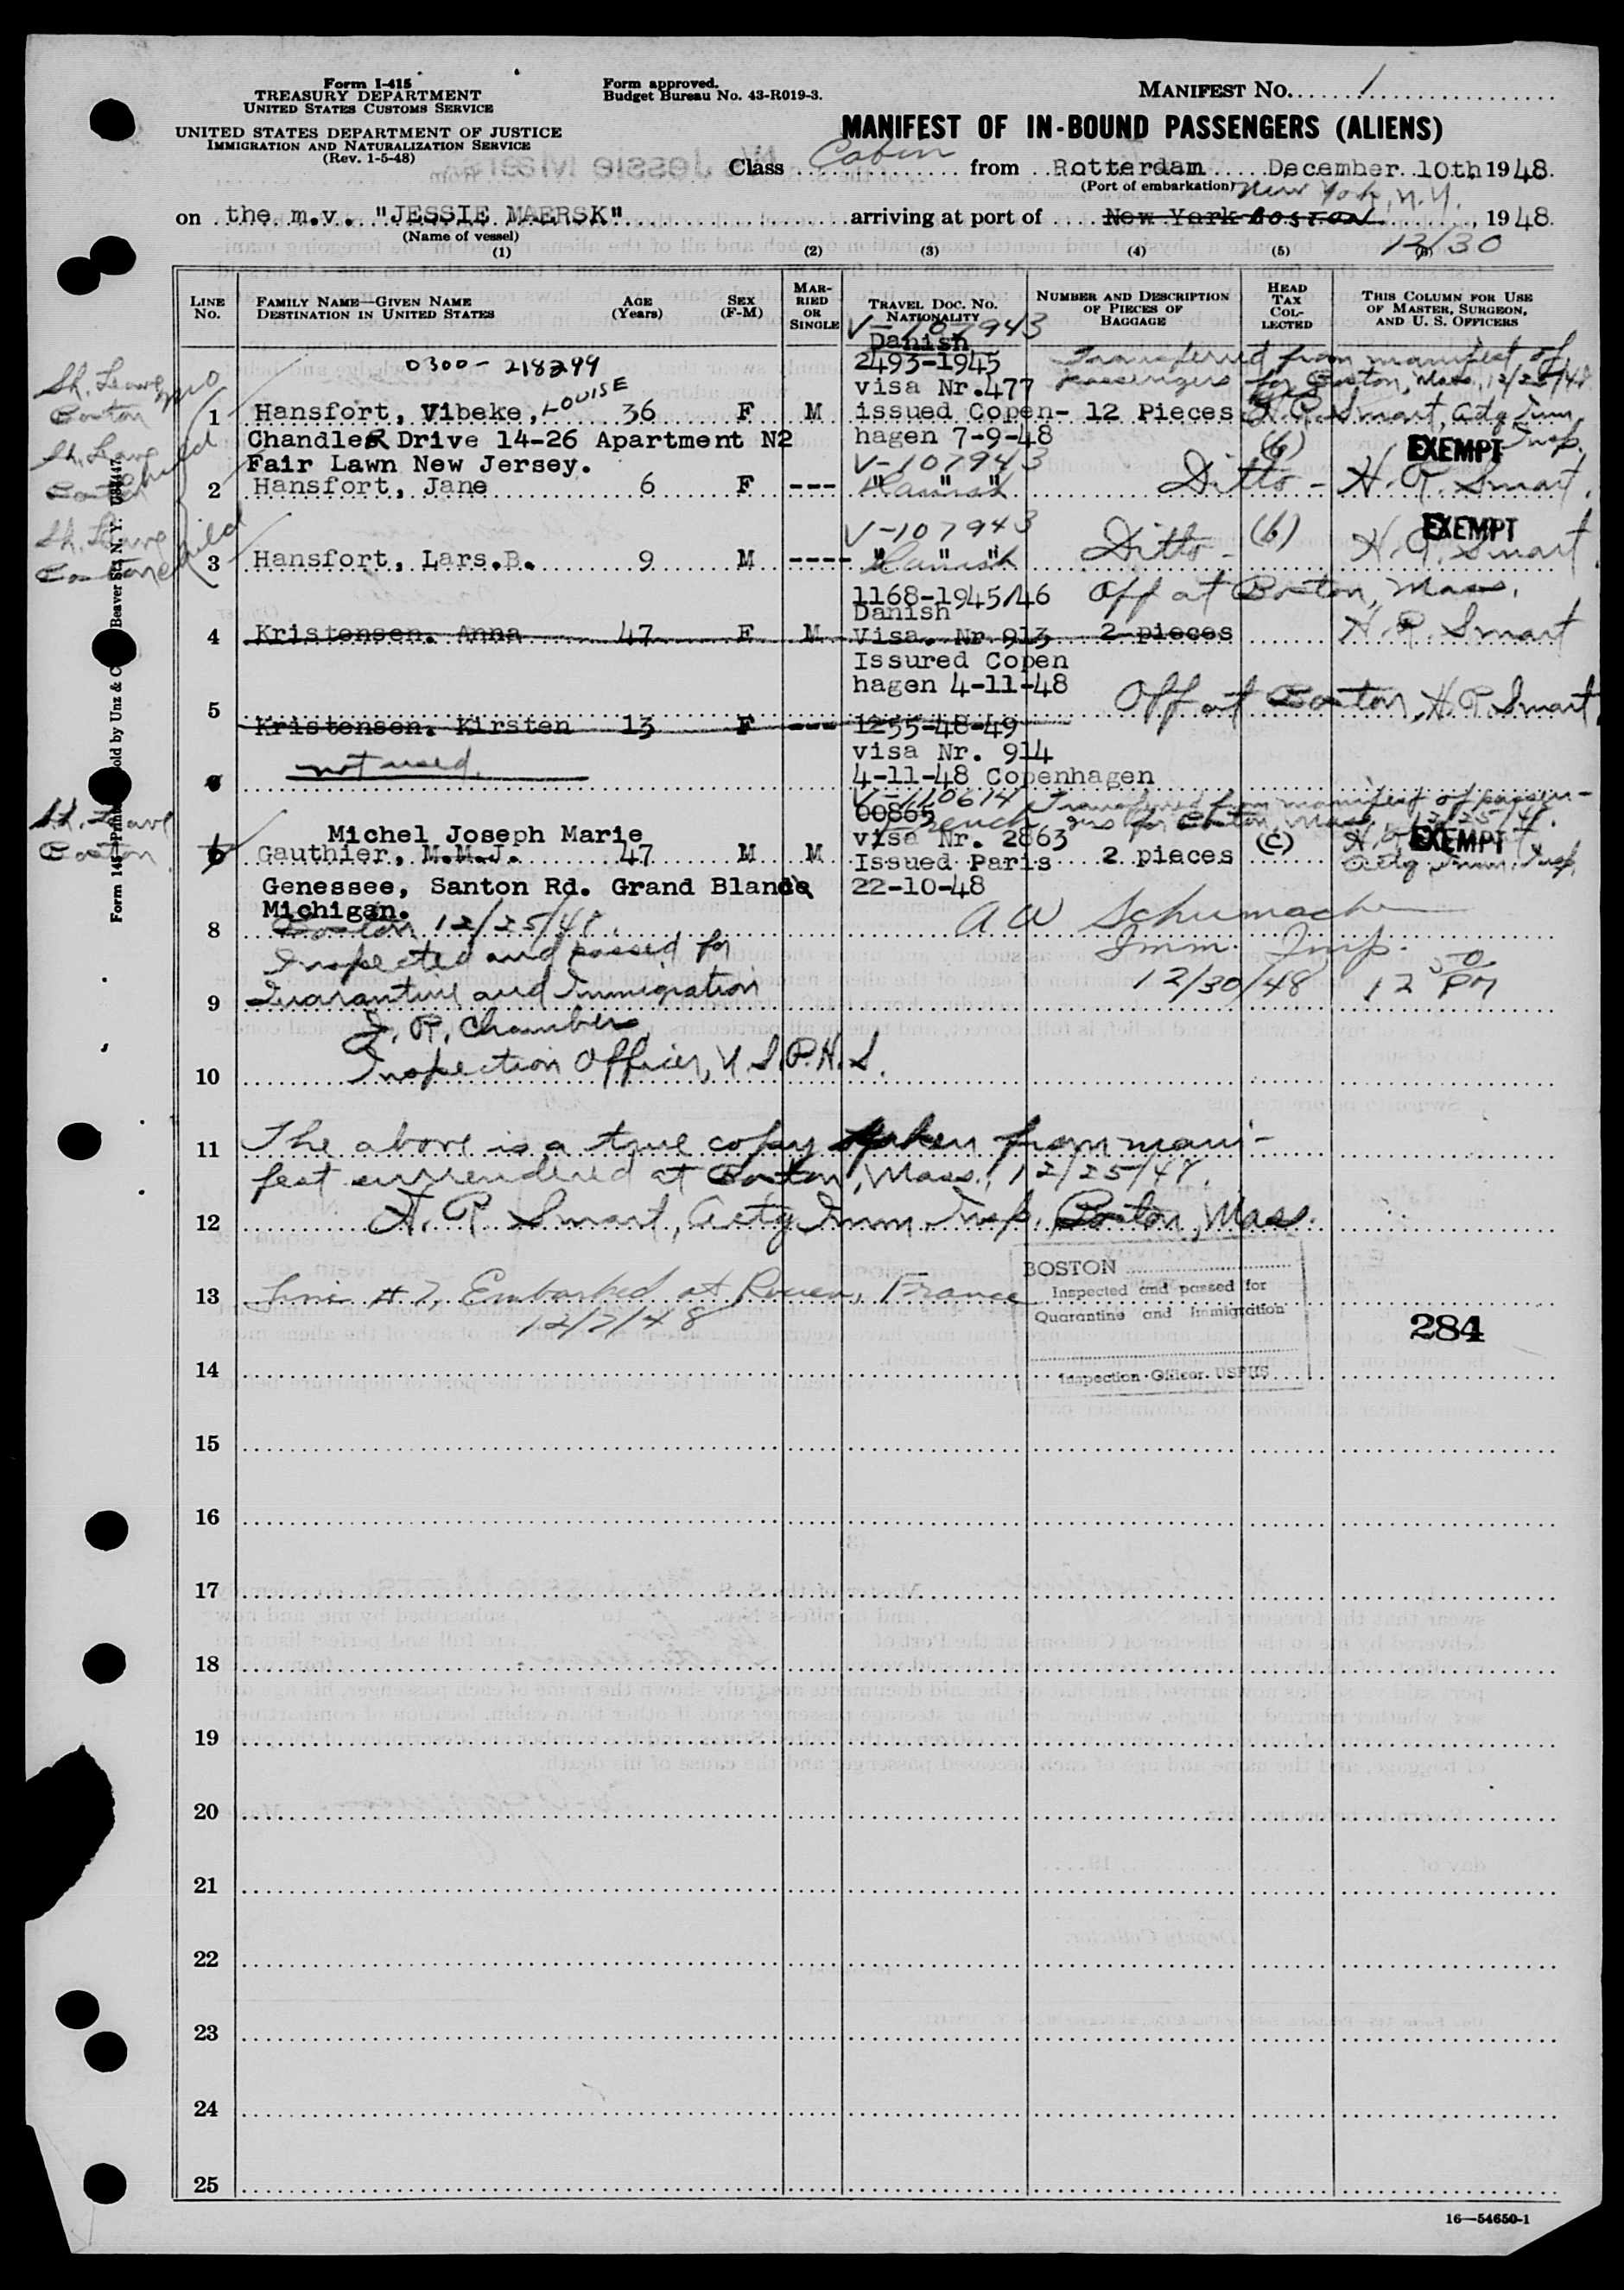 Form I-415
TREASURY DEPARTMENT
UNITED STATES CUSTOMS SERVICE
UNITED STATES DEPARTMENT OF JUSTICE
IMMIGRATION AND NATURALIZATION SERVICE
(Rev. 1-5-48)
Form approved.
Budget Bureau No. 43-R019-3.
MANIFEST NO. 1
MANIFEST OF IN-BOUND PASSENGERS (ALIENS)
Class Cabin from Rotterdam December 10th 1948.
(Port of embarkation) New York, N.Y.
on the m.v. "JESSIE MAERSK" arriving at port of New York BOSTON, 1948.
(Name of vessel)
12/30
(1) (2) (3) (4) (5) (6)
LINE No.
FAMILY NAME—GIVEN NAME
DESTINATION IN UNITED STATES
AGE (Years)
SEX (F-M)
MARRIED OR SINGLE
TRAVEL DOC. NO.
NATIONALITY
NUMBER AND DESCRIPTION OF PIECES OF BAGGAGE
HEAD TAX COLLECTED
THIS COLUMN FOR USE OF MASTER, SURGEON, AND U. S. OFFICERS
V-107943
Danish
0300-218299
2493-1945
Transferred from manifest of
visa Nr.477
passengers for Boston, Mass., 12/25/48
Sh. Leave
Boston
1 Hansfort, Vibeke, LOUISE 36 F M issued Copen- 12 Pieces H. R. Smart, Actg Imm. Insp.
ChandleR Drive 14-26 Apartment N2 hagen 7-9-48 (b) EXEMPT
Fair Lawn New Jersey. V-107943
Sh. Leave
Boston
child
2 Hansfort, Jane 6 F --- " " " Danish Ditto - H. R. Smart.
V-107943 (b) EXEMPT
Sh. Leave
Boston
child
3 Hansfort, Lars.B. 9 M ---- " " " Danish Ditto - H. R. Smart
1168-1945/46 Off at Boston, Mass.
Danish
4 Kristensen. Anna 47 F M Visa. Nr 913 2 pieces H. R. Smart
Issured Copen
hagen 4-11-48
5 Off at Boston, H. R. Smart
Kristensen. Kirsten 13 F --- 1255-48-49
not used. visa Nr. 914
6 4-11-48 Copenhagen
V-110614 Transferred from manifest of passen-
00865 French gers for Boston, Mass., 12/25/48.
Sh. Leave
Boston
Michel Joseph Marie visa Nr. 2863 EXEMPT
Gauthier, M.M.J. 47 M M Issued Paris 2 pieces (c) Actg Imm. Insp.
Genessee, Santon Rd. Grand Blanc 22-10-48
Michigan.
8 Boston 12/25/48. A W Schumacher
Inspected and passed for Imm. Insp.
9 Quarantine and Immigration 12/30/48 12 50 PM
J. R. Chambers
10 Inspection Officer, U.S.P.H.S.
11 The above is a true copy taken from mani-
fest surrendered at Boston, Mass., 12/25/48.
12 H. R. Smart, Actg Imm Insp. Boston, Mass.
13 Line #7, Embarked at Rouen, France
12/7/48
BOSTON
Inspected and passed for
Quarantine and Immigration
Inspection Officer. USPHS
284
14
15
16
17
18
19
20
21
22
23
24
25
16—54650-1